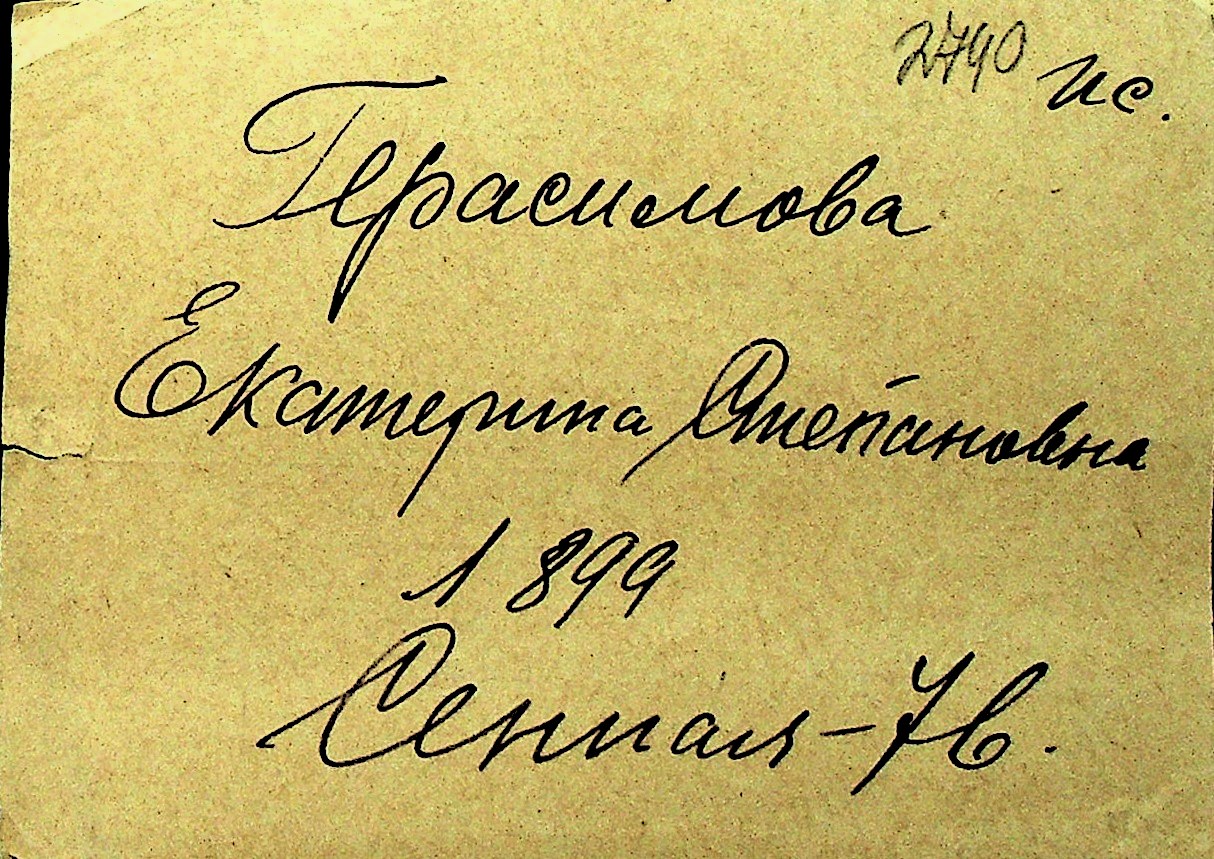 2790 ис.
Герасимова
Екатерина Степановна
1899
Сенная-7в.